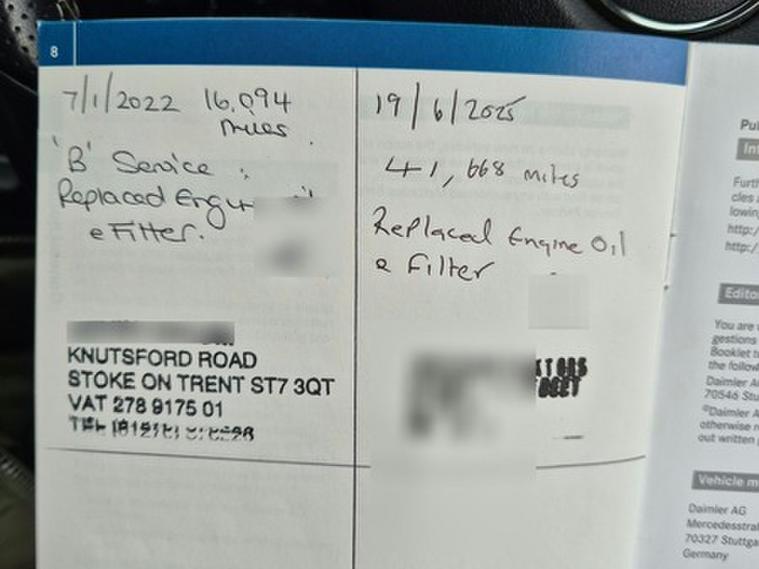 8
7/1/2022 16,094
miles
'B' Service :
Replaced
e Filter.
KNUTSFORD ROAD
STOKE ON TRENT ST7 3QT
VAT 278 9175 01
19/6/2025
41,668 miles
Replaced Engine Oil
e Filter
Furth
cles a
lowin
http:/
http:/
Edito
You are
gestions
Booklet to
the follow
Daimler A
70546 Stu
©Daimler A
otherwise r
out written
Vehicle m
Daimler AG
Mercedesstra
70327 Stuttga
Germany